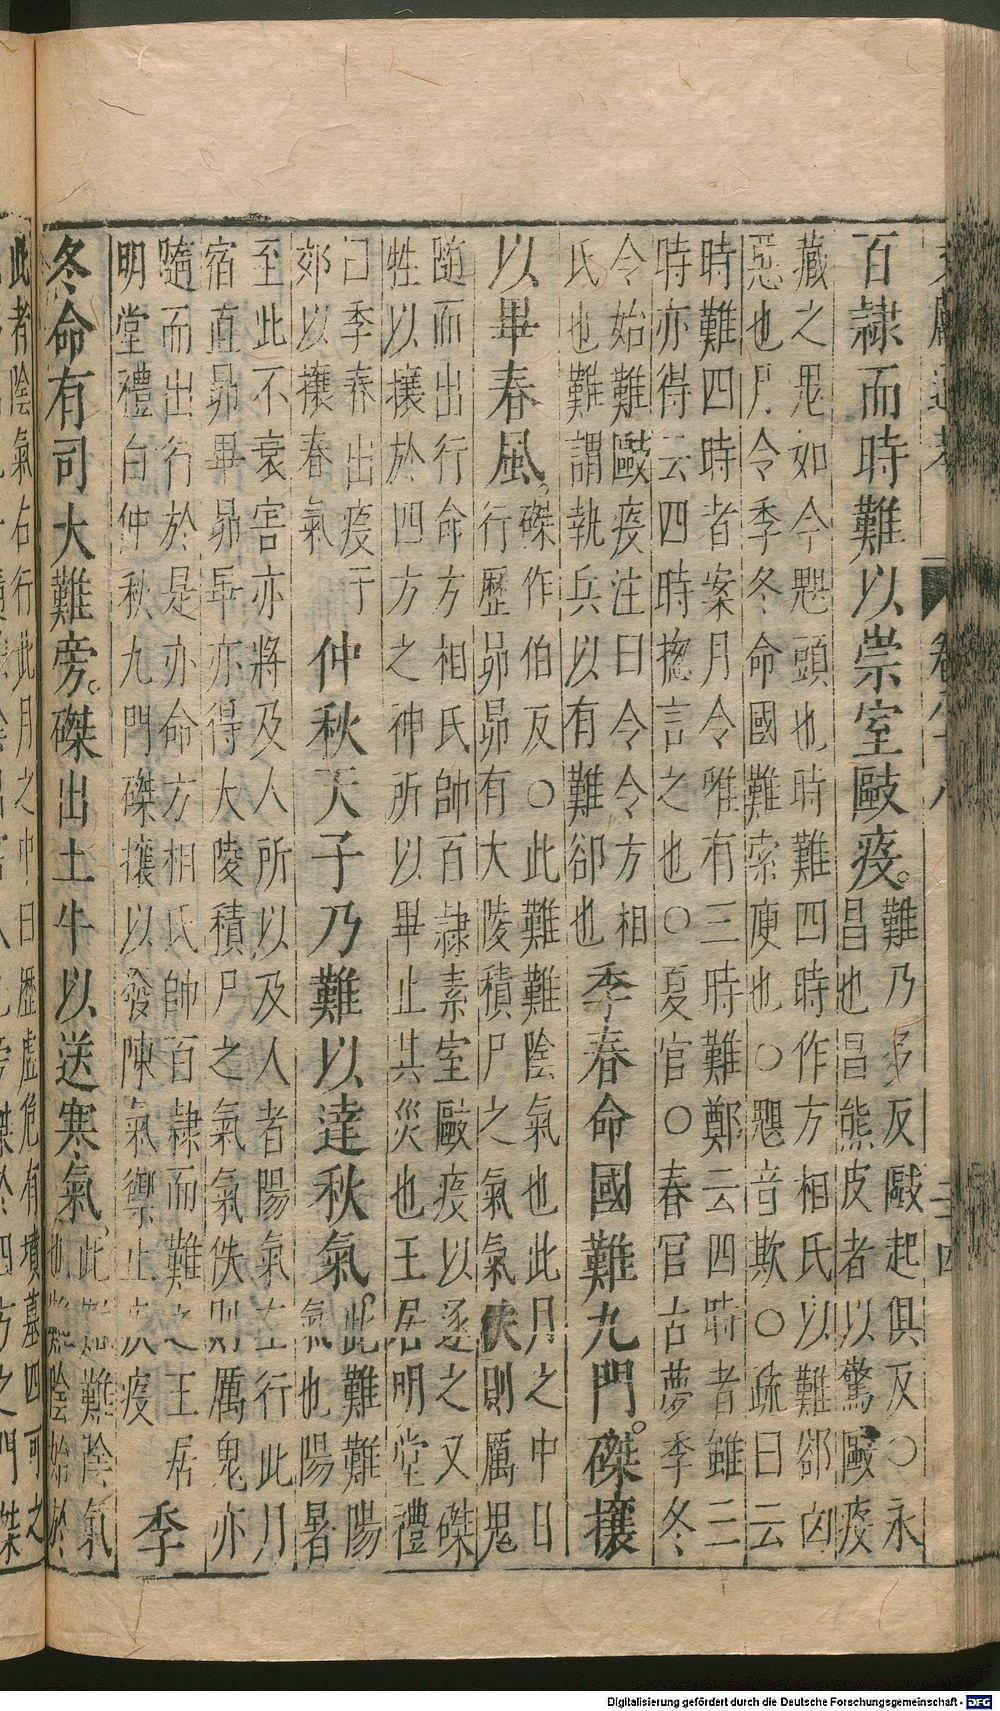 卷八十八 三四
百隸而時難以崇室毆疫。難乃多反毆起俱反〇永
昌也昌熊皮者以驚毆疫
藏之鬼如今魌頭也時難四時作方相氏以難郤凶
惡也月令季冬命國難索廋也〇魌音欺〇疏曰云
時難四時者案月令唯有三時難鄭云四時者雖三
時亦得云四時揔言之也〇夏官〇春官占夢季冬
令始難毆疫注曰令令方相
氏也難謂執兵以有難郤也季春命國難九門磔攘
以畢春風。磔作伯反〇此難難陰氣也此月之中日
行歷昴昴有大陵積尸之氣氣佚則厲鬼
隨而出行命方相氏帥百隷索室毆疫以逐之又磔
牲以攘於四方之神所以畢止其災也王居明堂禮
曰季春出疫于
郊以攘春氣仲秋天子乃難以達秋氣。此難難陽
氣也陽暑
至此不衰害亦將及人所以及人者陽氣左行此月
宿直昴畢昴畢亦得大陵積尸之氣氣佚則厲鬼亦
隨而出行於是亦命方相氏帥百隷而難之王居
明堂禮曰仲秋九門磔攘以發陳氣禦止疾疫季
冬命有司大難旁。磔出土牛以送寒氣。此難難陰氣
也難陰始於
此者陰氣右行此月之中日歷虛危有墳墓四司之
Digitalisierung gefördert durch die Deutsche Forschungsgemeinschaft - DFG